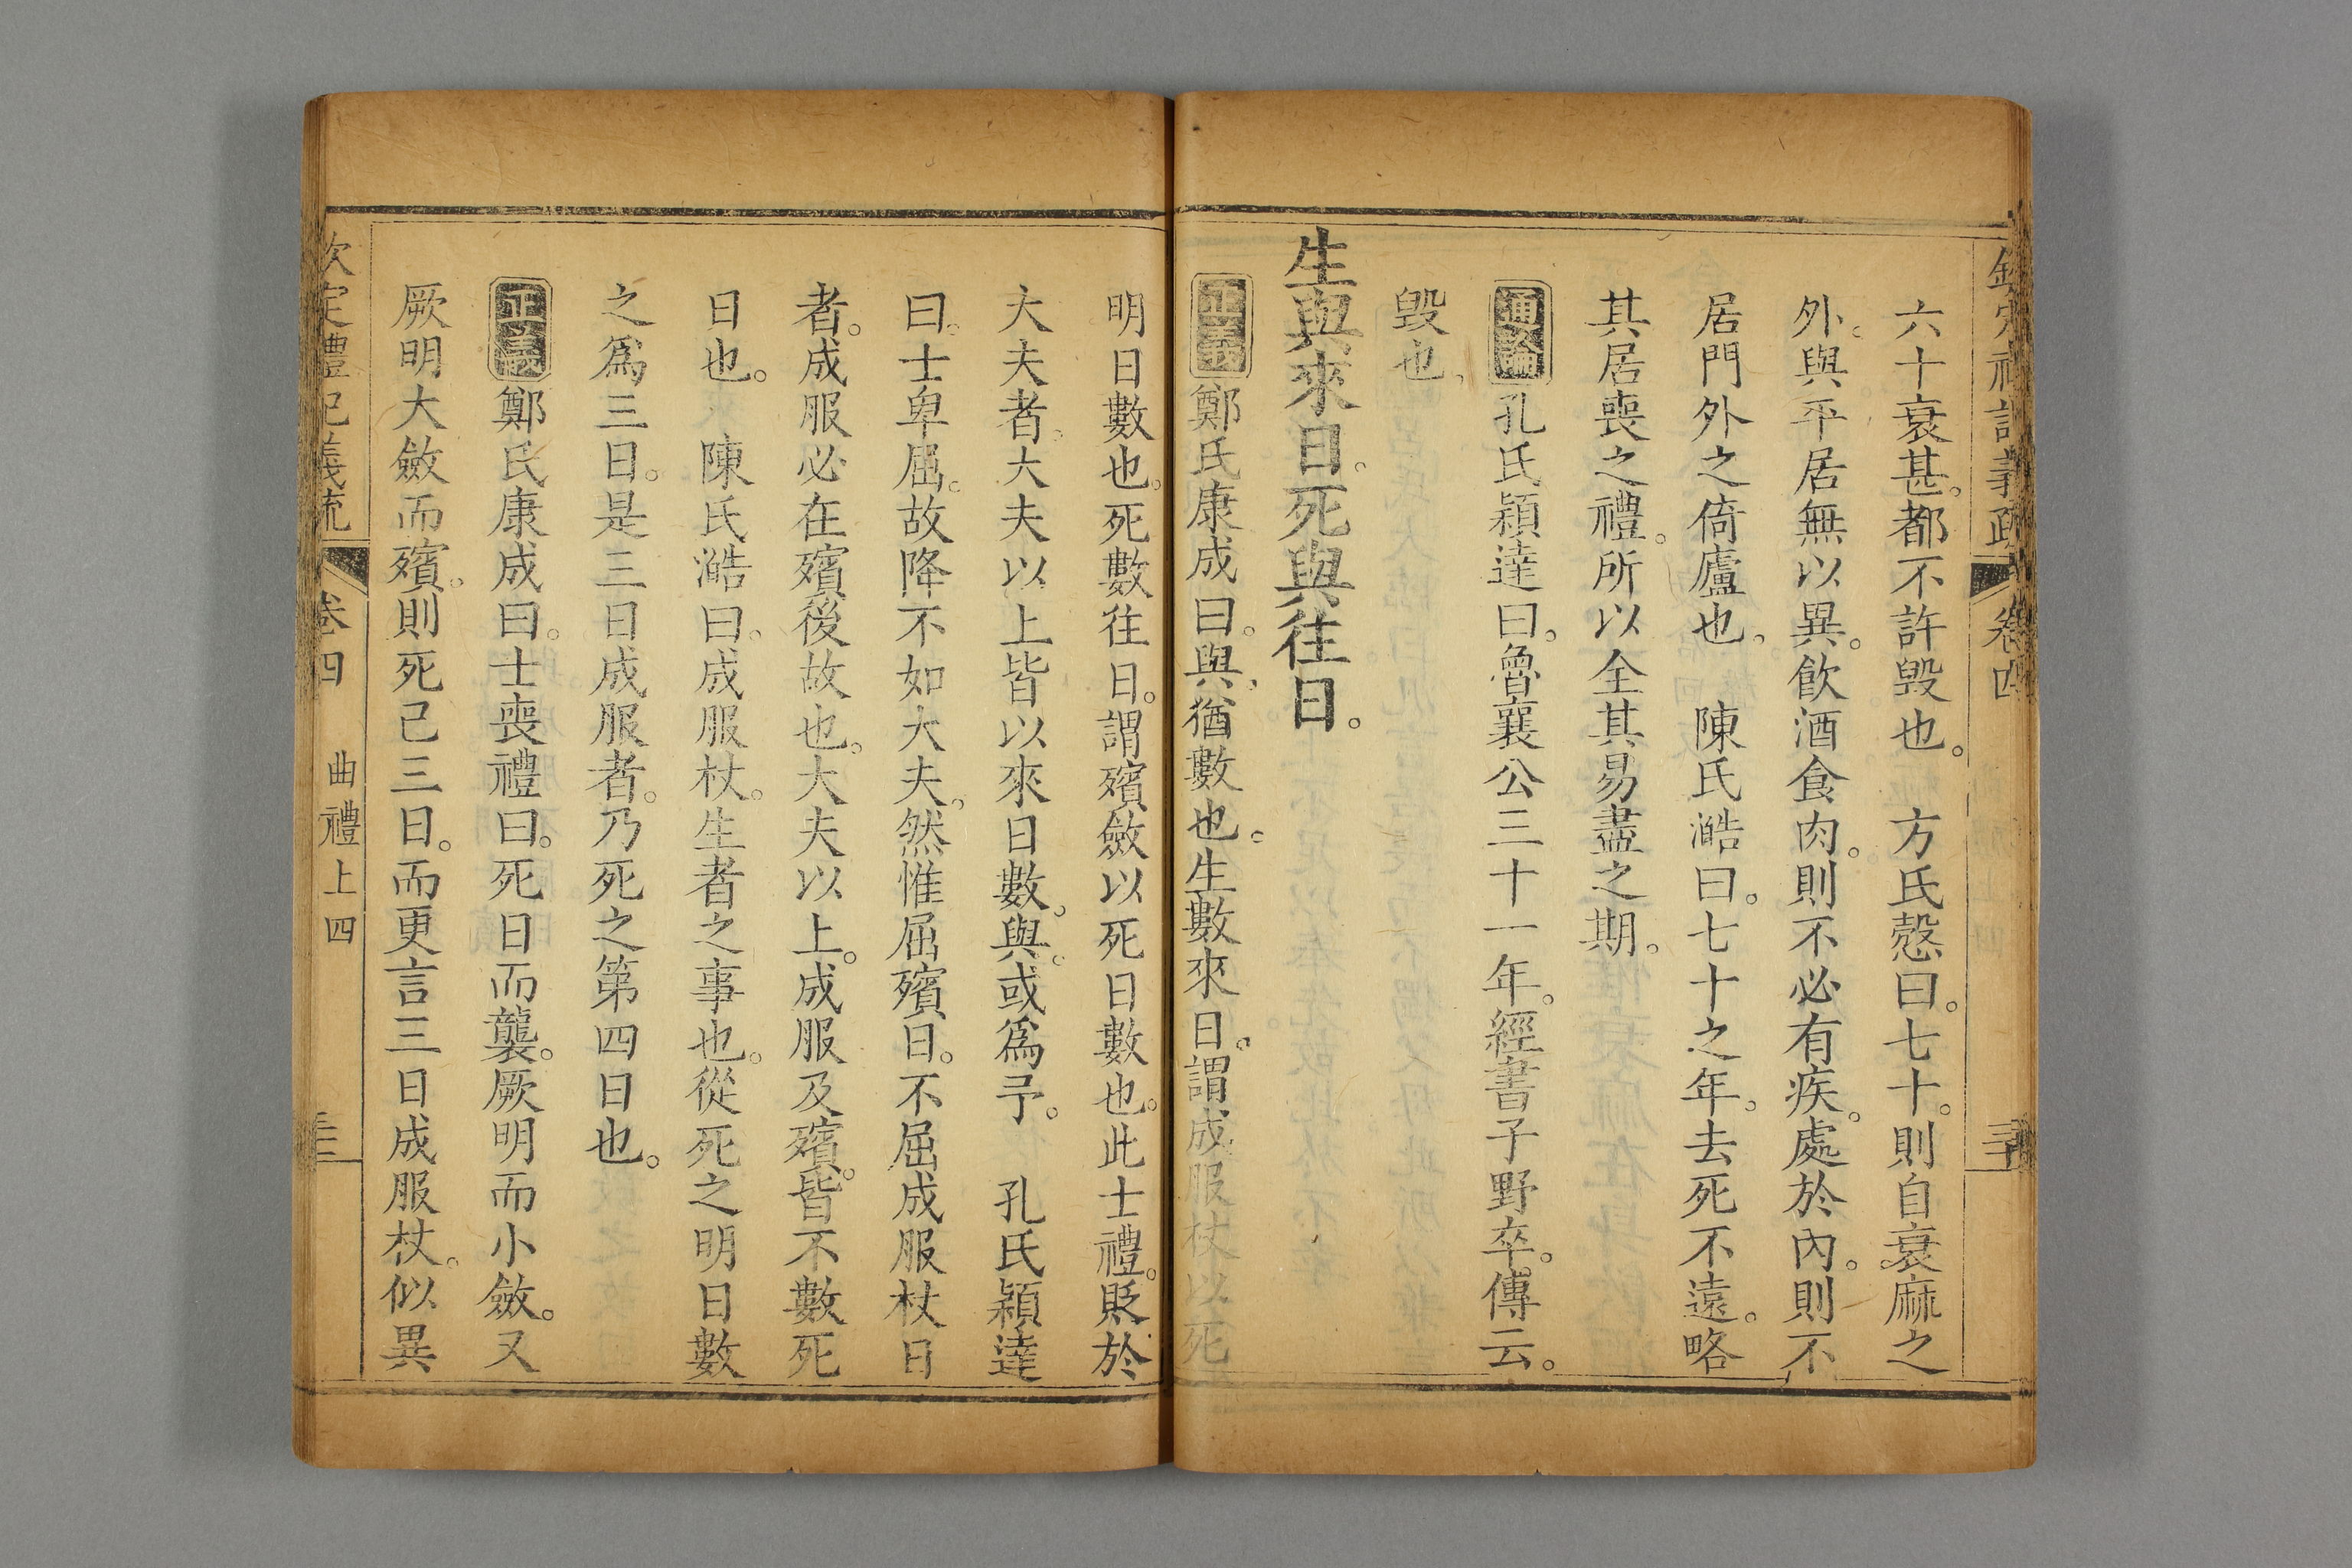 六十衰甚。都不許毀也。 方氏慤曰。七十。則自衰麻之
外。與平居無以異。飲酒食肉。則不必有疾。處於內。則不
居門外之倚廬也。 陳氏澔曰。七十之年。去死不遠。略
其居喪之禮。所以全其易盡之期。
通論孔氏穎達曰。魯襄公三十一年。經書子野卒。傳云。
毀也。
生與來日。死與往日。
正義鄭氏康成曰。與。猶數也。生數來日。謂成服杖以死
明日數也。死數往日。謂殯斂以死日數也。此士禮。貶於
大夫者。大夫以上皆以來日數。與。或爲予。 孔氏穎達
曰。士卑屈。故降不如大夫。然惟屈殯日。不屈成服杖日
者。成服必在殯後故也。大夫以上。成服及殯。皆不數死
日也。 陳氏澔曰。成服杖。生者之事也。從死之明日數
之爲三日。是三日成服者。乃死之第四日也。
正義鄭氏康成曰。士喪禮曰。死日而襲。厥明而小斂。又
厥明大斂而殯。則死已三日。而更言三日成服杖。似異
欽定禮記義疏 卷四 曲禮上四